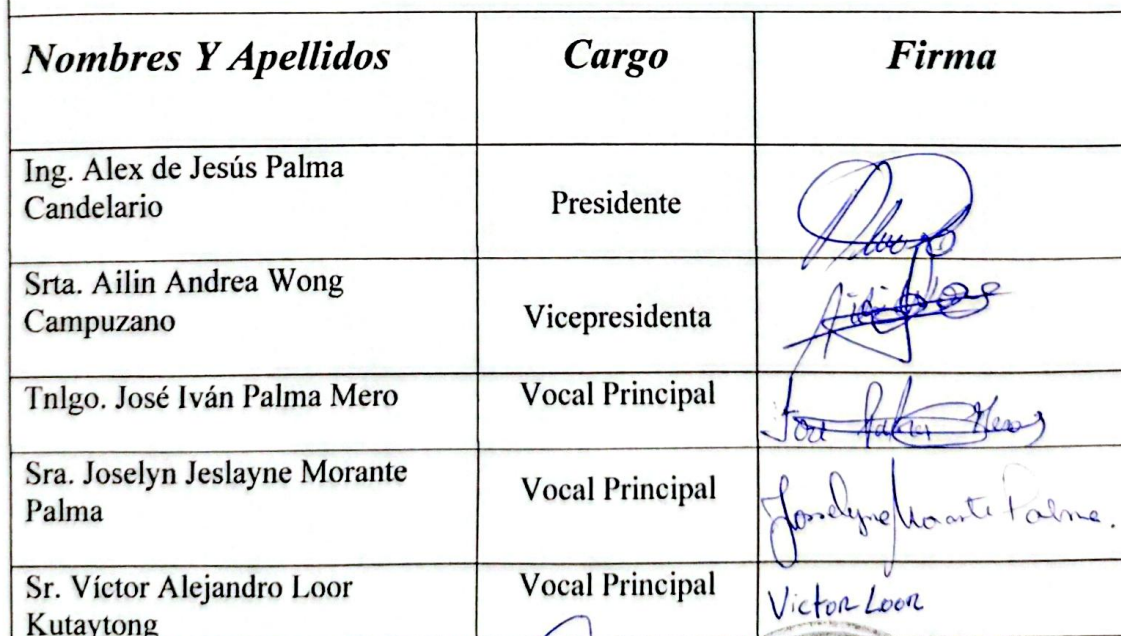 Nombres Y Apellidos Cargo Firma
Ing. Alex de Jesús Palma
Candelario
Presidente
Srta. Ailin Andrea Wong
Campuzano
Vicepresidenta
Tnlgo. José Iván Palma Mero
Vocal Principal
Jose Palma Mero
Sra. Joselyn Jeslayne Morante
Palma
Vocal Principal
Palma.
Sr. Víctor Alejandro Loor
Kutaytong
Vocal Principal
Victor Loor